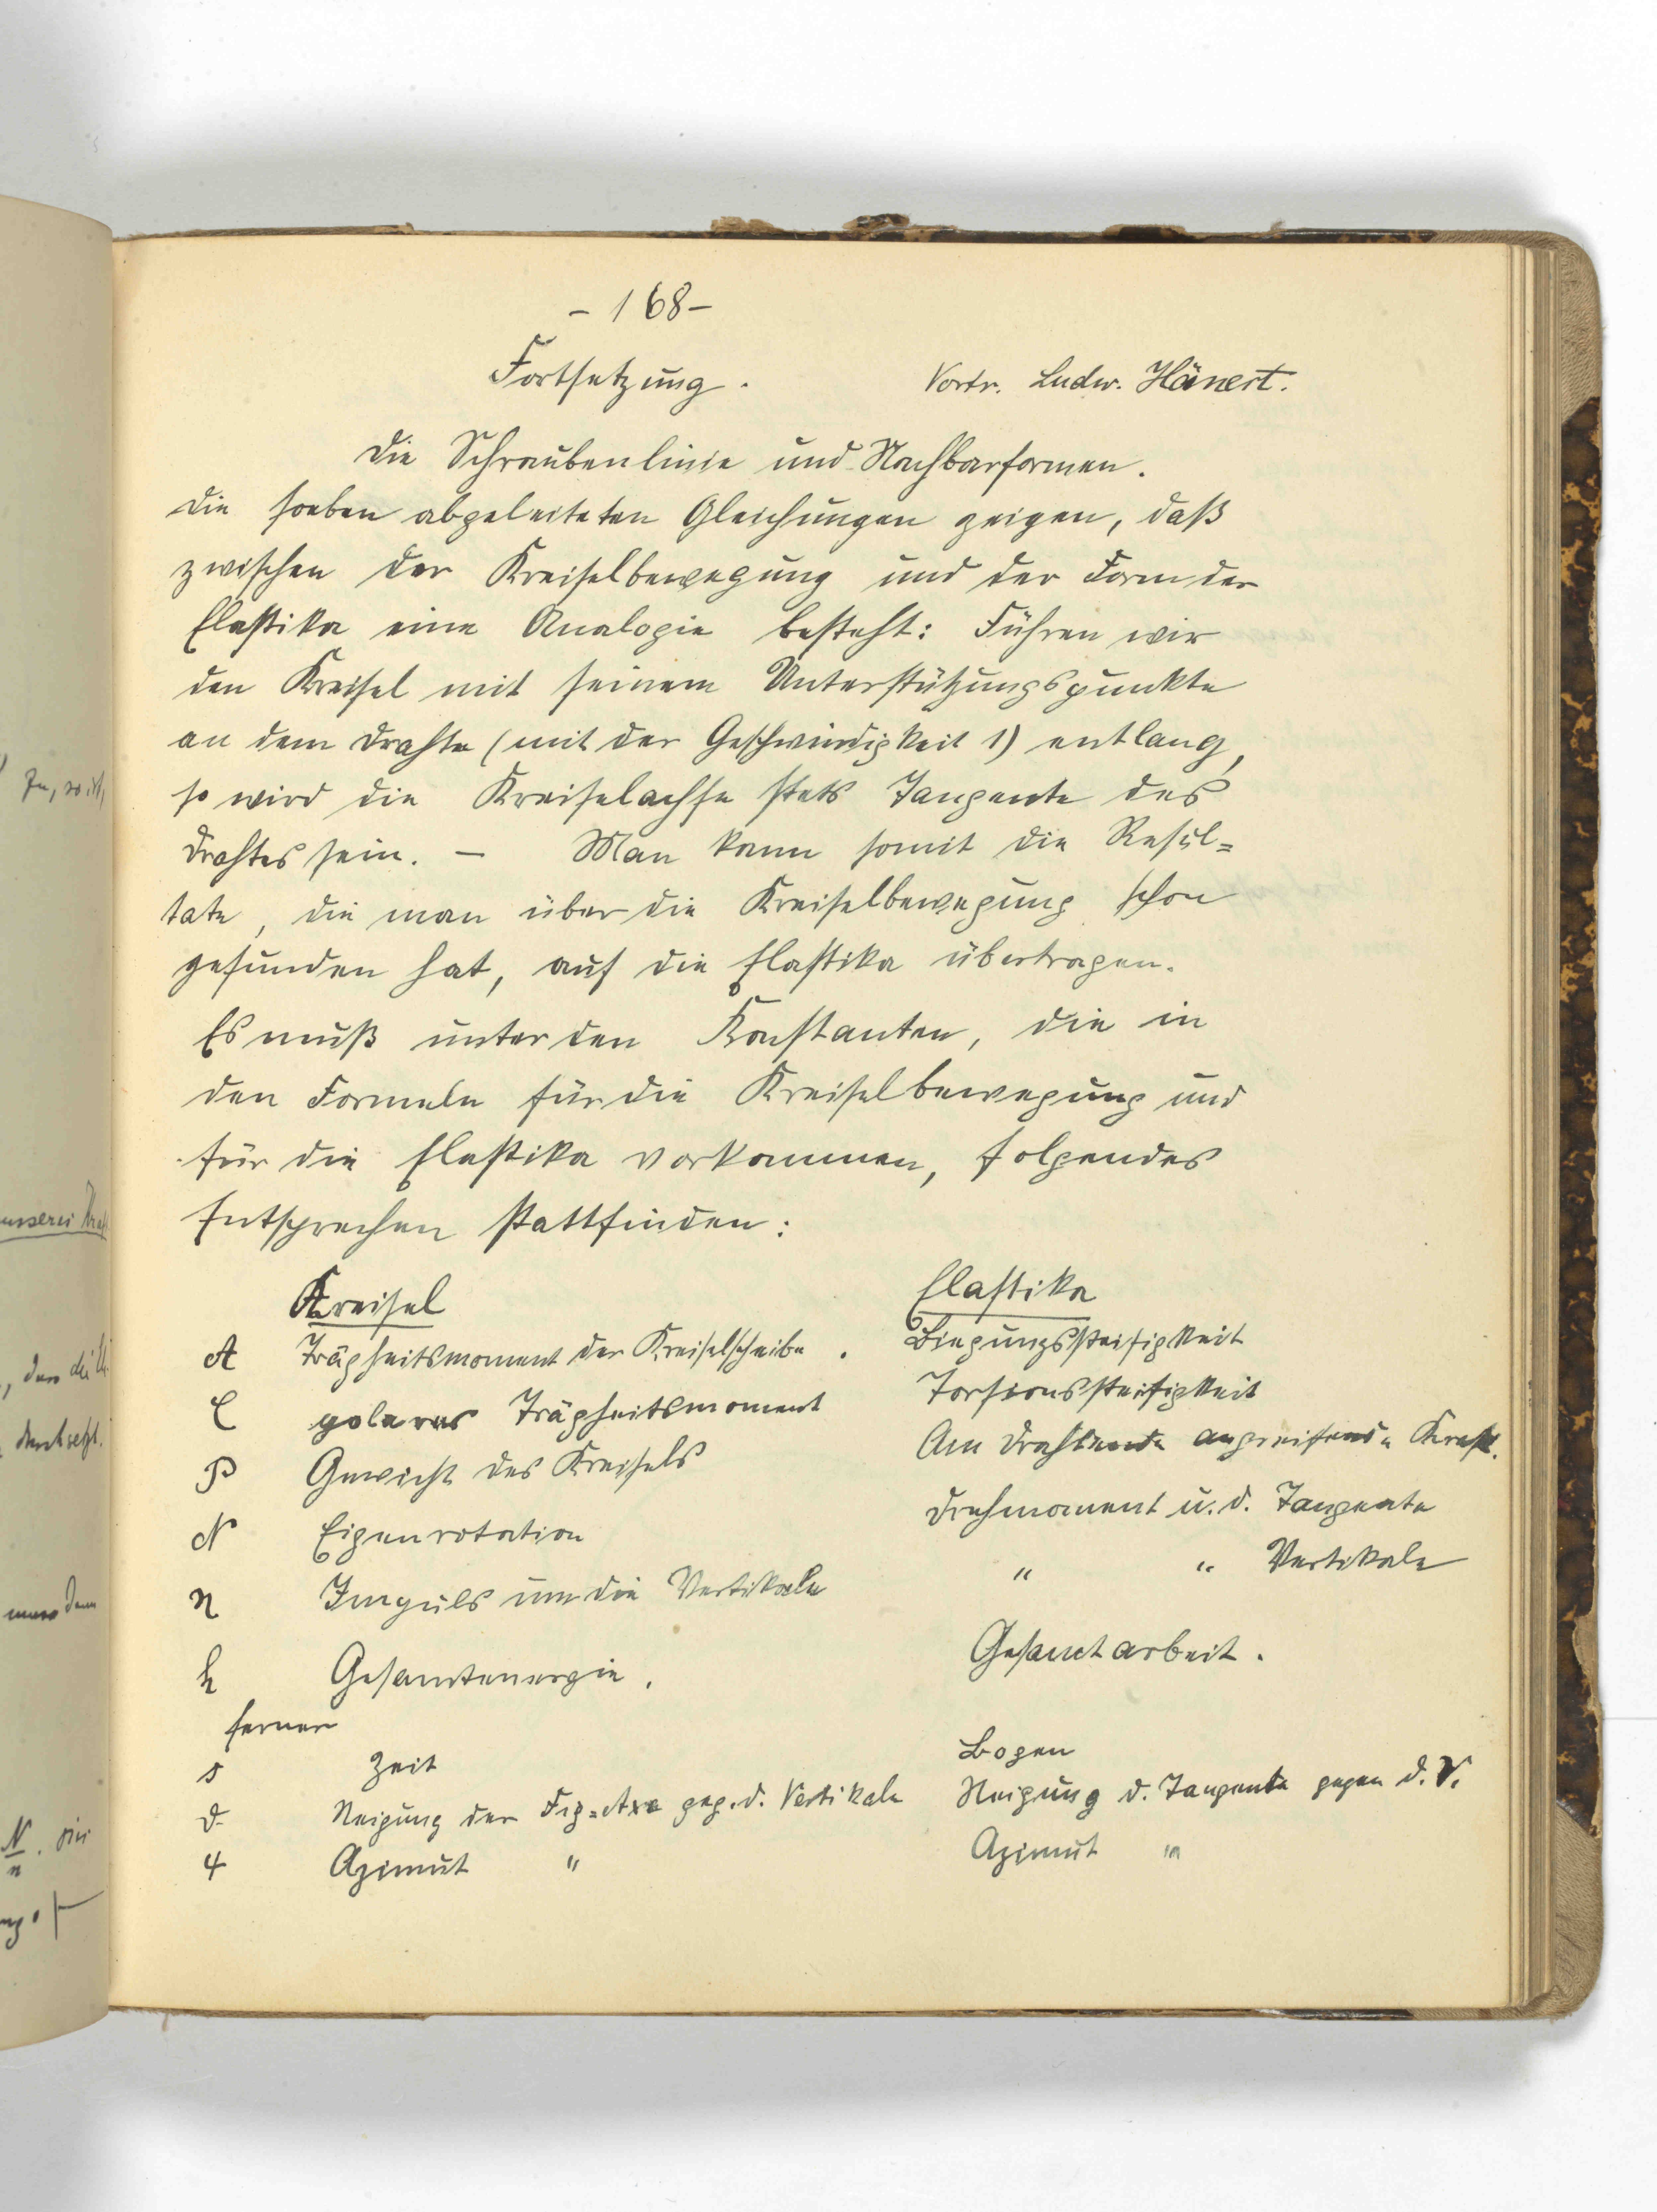 - 168 -
Fortsetzung. Vortr. Ludw. Hänert.
Die Schraubenlinie und Nachbarformen.
Die soeben abgeleiteten Gleichungen zeigen, daß
zwischen der Kreiselbewegung und der Form der
Elastika eine Analogie besteht: Führen wir
den Kreisel mit seinem Unterstützungspunkte
an dem Drahte (mit der Geschwindigkeit 1) entlang,
so wird die Kreiselachse stets Tangente des
Drahtes sein. — Man kann somit die Resul=
tate, die man über die Kreiselbewegung schon
gefunden hat, auf die Elastika übertragen.
Es muß unter den Konstanten, die in
den Formeln für die Kreiselbewegung und
für die Elastika vorkommen, folgendes
Entsprechen stattfinden:
Kreisel Elastika
A Trägheitsmoment der Kreiselscheibe. Biegungssteifigkeit
C polares Trägheitsmoment Torsionssteifigkeit
P Gewicht des Kreisels Am Drahtende angreifende Kraft.
N Eigenrotation Drehmoment u. d. Tangente
n Impuls um die Vertikale " " Vertikale
h Gesamtenergie. Gesamtarbeit.
ferner
s Zeit Bogen
ϑ Neigung der Fig=Axe geg. d. Vertikale Neigung d. Tangente gegen d. V.
ψ Azimut " Azimut "
zu, so ist,
durchsetzt.
muss dann
N/n . sin